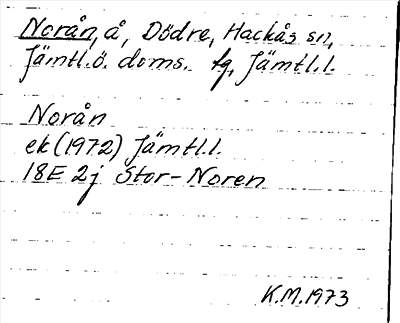 Norån, å, Dödre, Hackås sn,
Jämtl.ö. doms. tg, Jämtl.l.
Norån
ek (1972) Jämtl.l.
18E 2j Stor-Noren
K.M. 1973